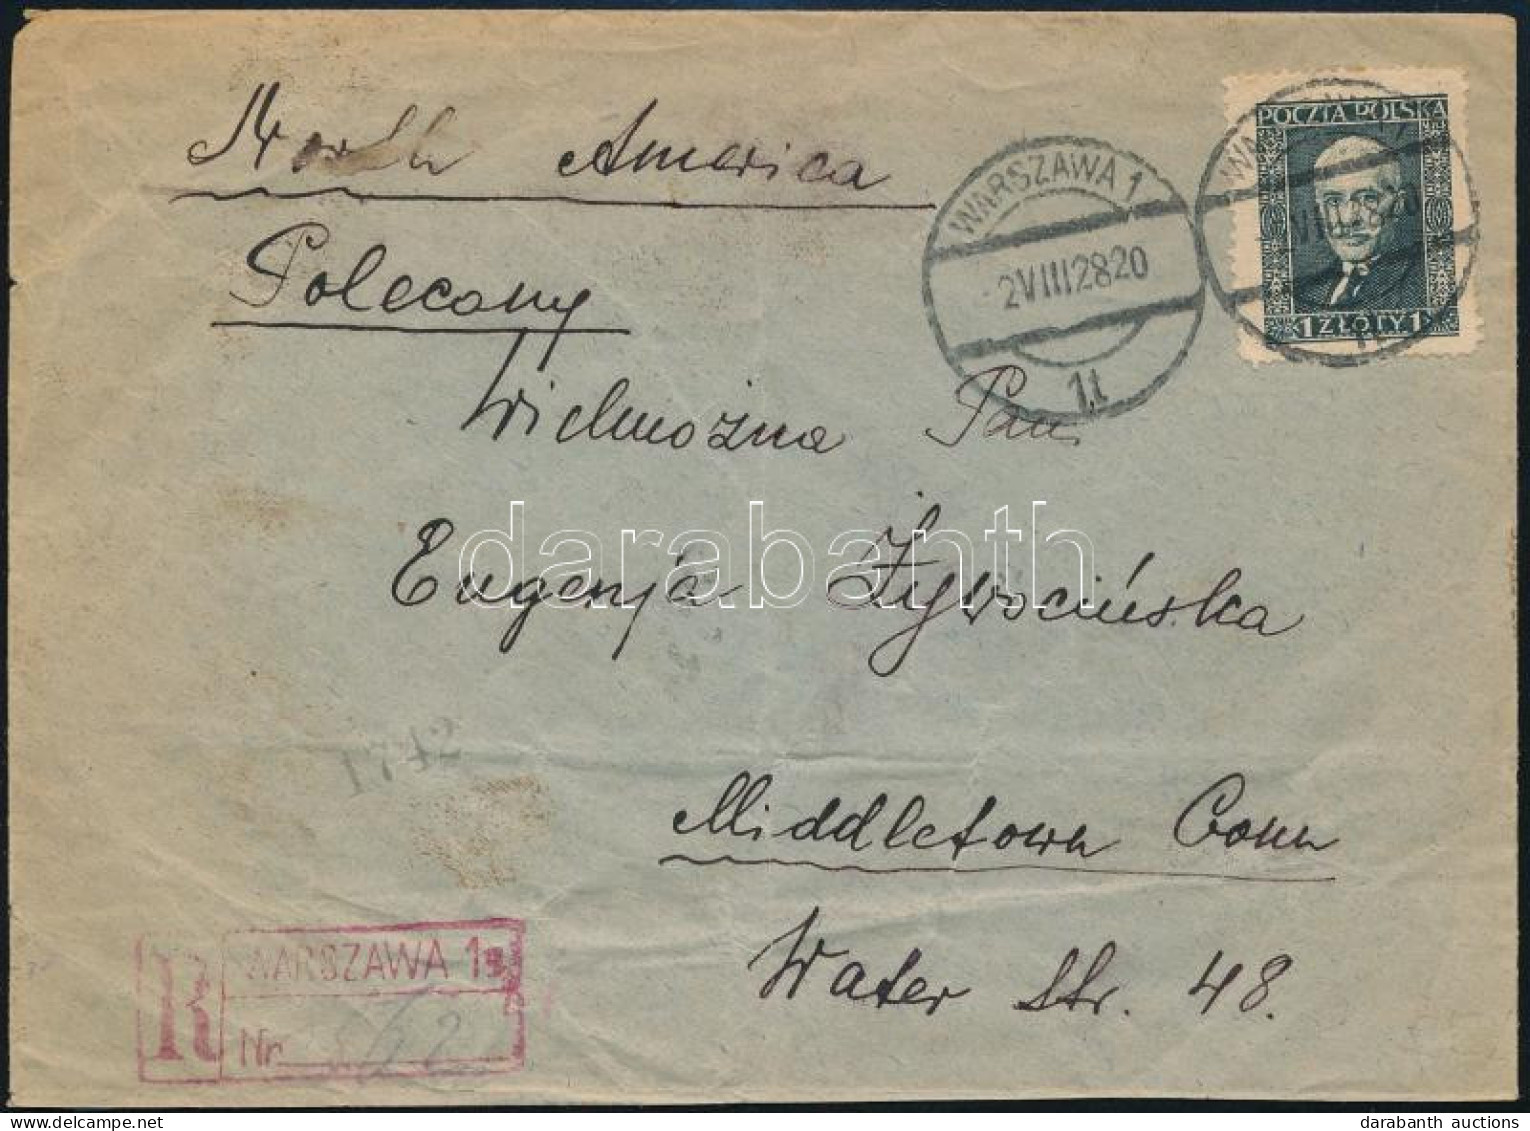 North America
Polecony
Wielmożna Pani
Eugenja Żywocińska
Middletown Conn
Water Str. 48.
WARSZAWA 1
2 VIII 28 20
1t
POCZTA POLSKA
VIII 28 20
1 ZŁOTY 1
darabanth
2471
R WARSZAWA 1
Nr
darabanth auctions